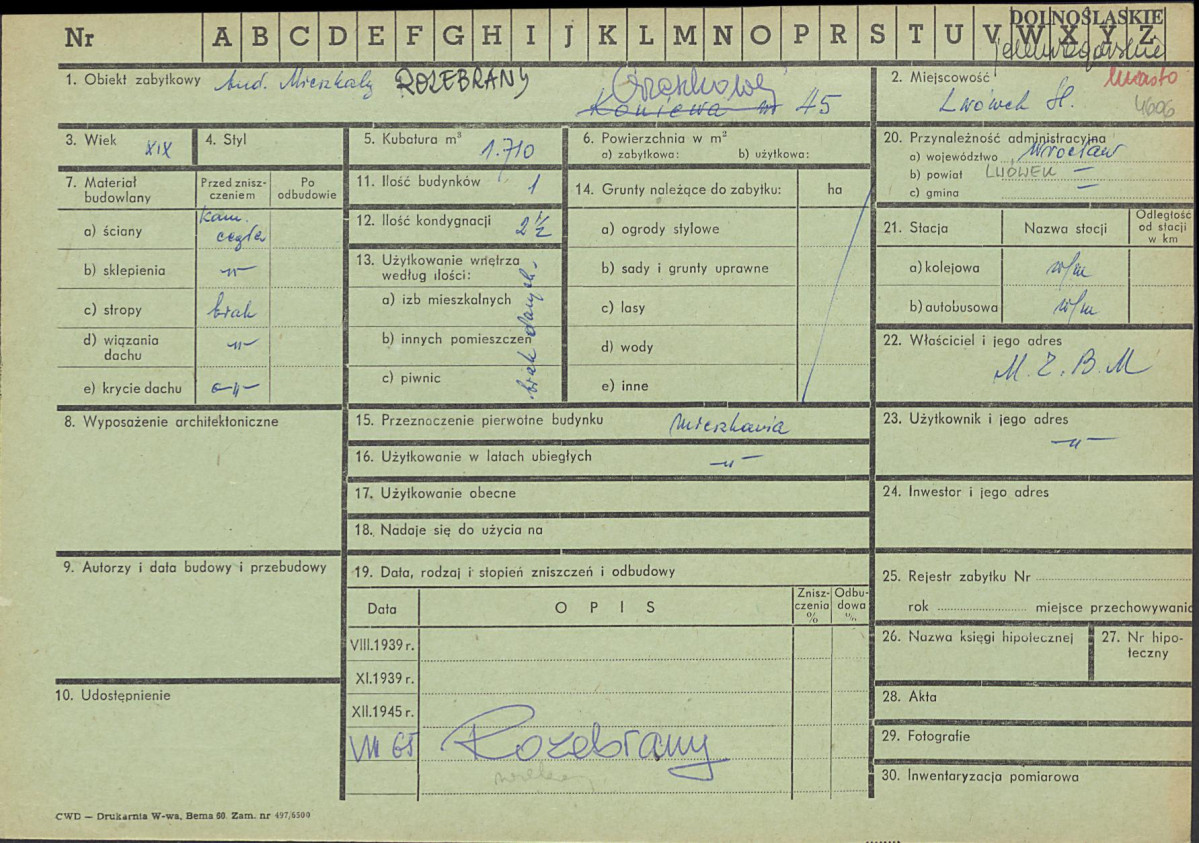 DOLNOŚLĄSKIE
Nr A B C D E F G H I J K L M N O P R S T U V W X Y Z
jeleniogórskie
1. Obiekt zabytkowy bud. Mieszkalny ROZEBRANY
Orzeszkowej
45
2. Miejscowość miasto
Lwówek Śl. 4606
3. Wiek XIX
4. Styl
5. Kubatura m³ 1.710
6. Powierzchnia w m²
a) zabytkowa: b) użytkowa:
20. Przynależność administracyjna
a) województwo Wrocław
b) powiat LWÓWEK —
c) gmina —
7. Materiał budowlany
Przed znisz-
czeniem
Po
odbudowie
a) ściany kam.
cegła
b) sklepienia -"-
c) stropy brak
d) wiązania
dachu -"-
e) krycie dachu -"-
11. Ilość budynków 1
12. Ilość kondygnacji 2 ½
13. Użytkowanie wnętrza
według ilości:
a) izb mieszkalnych
b) innych pomieszczeń
c) piwnic
brak danych-
14. Grunty należące do zabytku: ha
a) ogrody stylowe
b) sady i grunty uprawne
c) lasy
d) wody
e) inne
21. Stacja Nazwa stacji
Odległość
od stacji
w km
a) kolejowa w/m
b) autobusowa w/m
22. Właściciel i jego adres
M. Z. B. M
8. Wyposażenie architektoniczne
15. Przeznaczenie pierwotne budynku mieszkania
16. Użytkowanie w latach ubiegłych -"-
17. Użytkowanie obecne
18. Nadaje się do użycia na
23. Użytkownik i jego adres
-"-
24. Inwestor i jego adres
9. Autorzy i data budowy i przebudowy
19. Data, rodzaj i stopień zniszczeń i odbudowy
Data O P I S
Znisz-
czenia
%
Odbu-
dowa
%
VIII.1939 r.
XI.1939 r.
XII.1945 r.
VIII 65 Rozebrany
25. Rejestr zabytku Nr
rok miejsce przechowywania
26. Nazwa księgi hipotecznej
27. Nr hipo-
teczny
10. Udostępnienie
28. Akta
29. Fotografie
30. Inwentaryzacja pomiarowa
CWD — Drukarnia W-wa, Bema 60. Zam. nr 497/6500